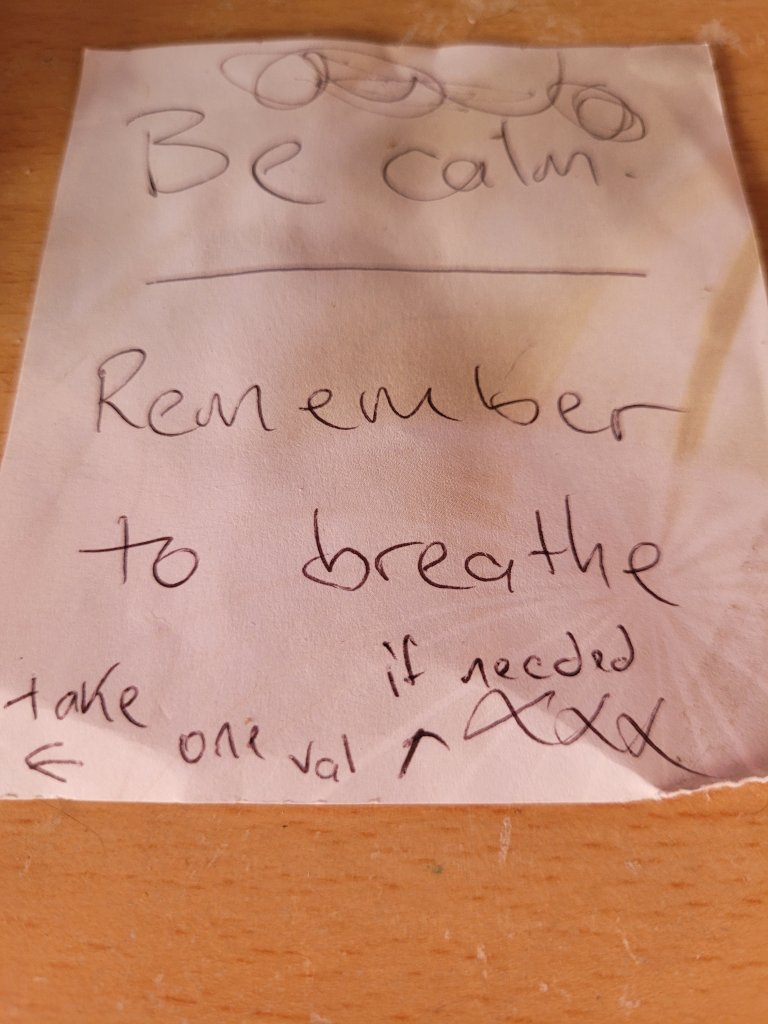 Be calm.
Remember
to breathe
if needed
take one val ↑ xxx
←